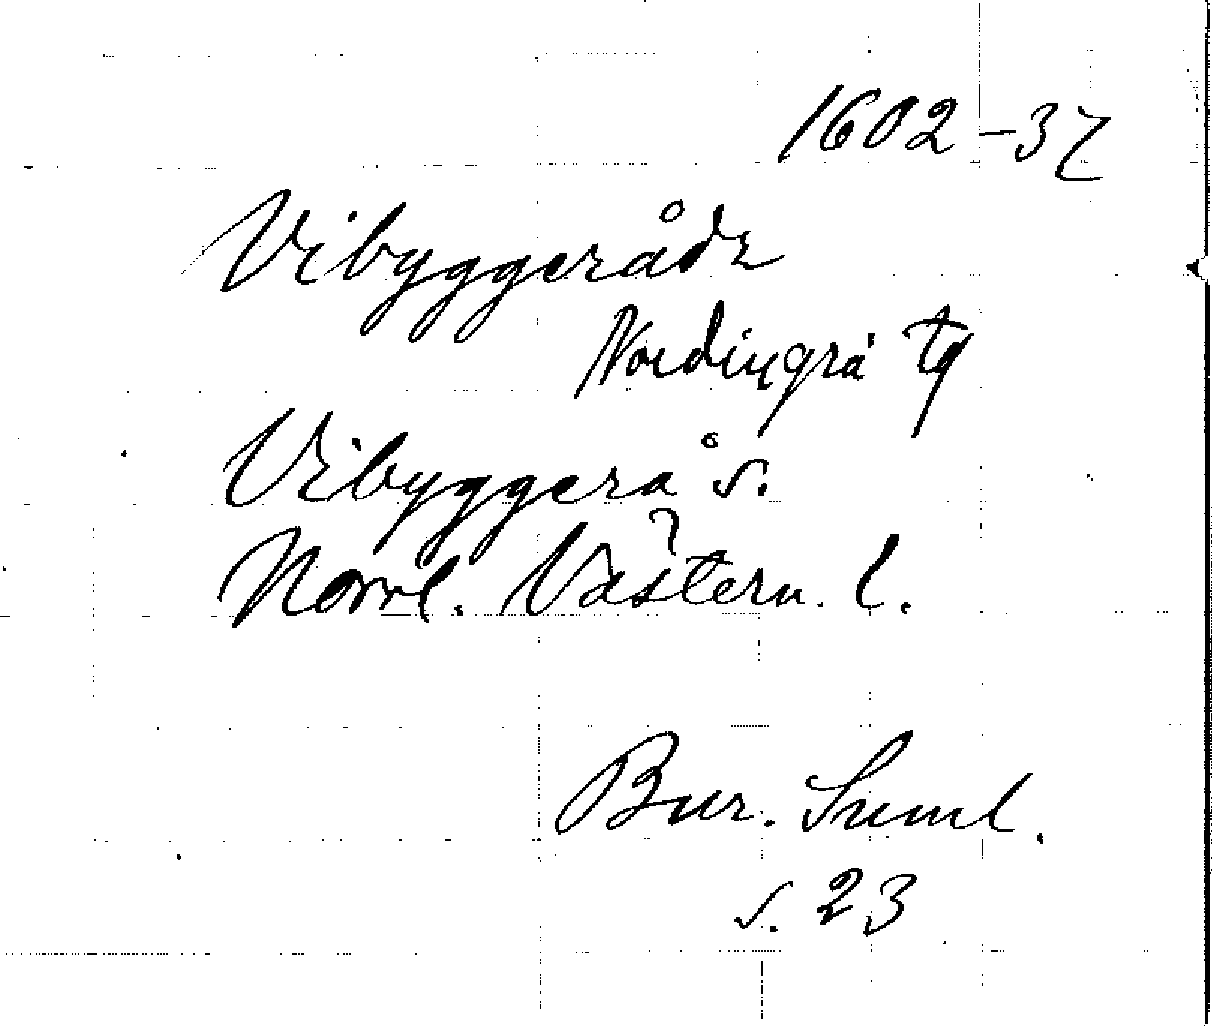 1602-37
Vibyggeråde
Nordingrå tg
Vibyggerå s.
Norrl. Västern. l.
Bur. Suml.
s. 23